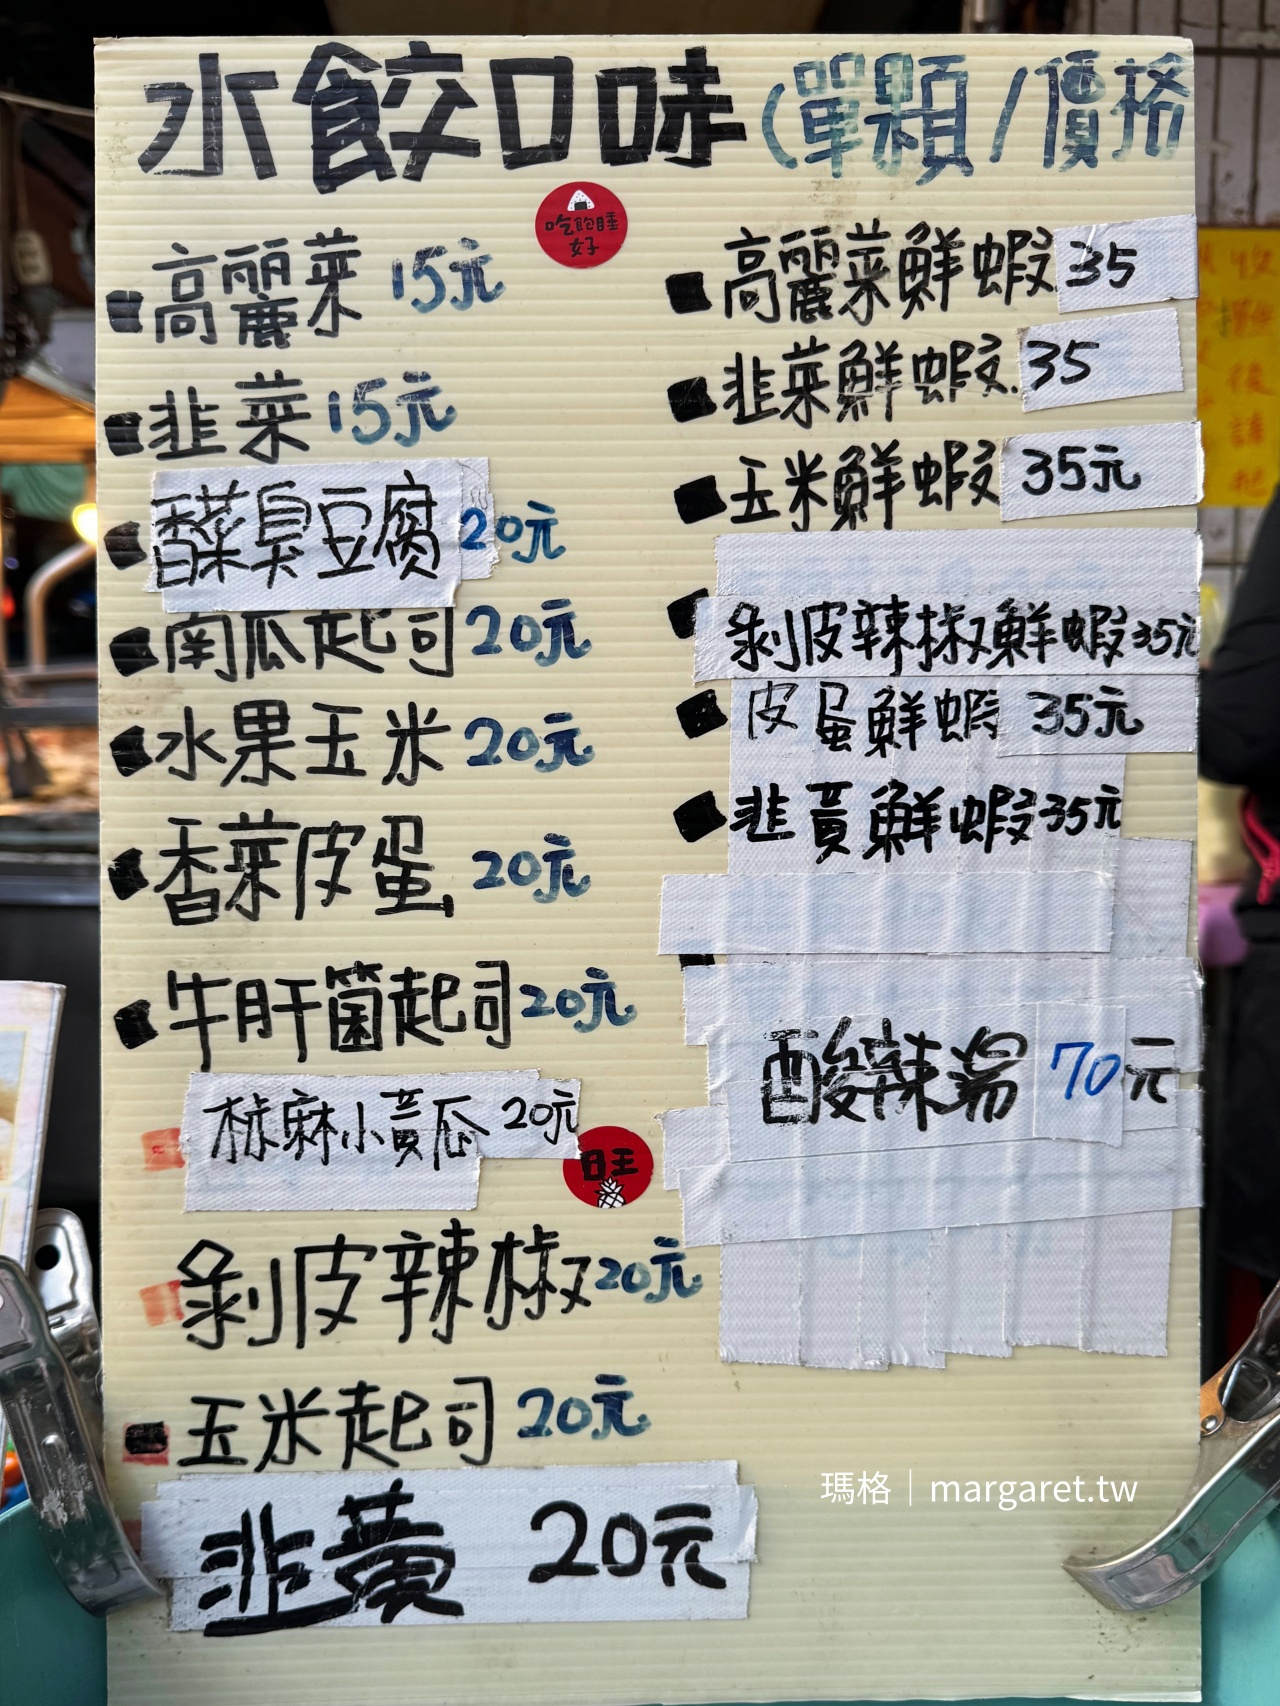 水餃口味(單顆/價格
吃飽睡
好
高麗菜 15元
韭菜 15元
香菜臭豆腐 20元
南瓜起司 20元
水果玉米 20元
香菜皮蛋 20元
牛肝菌起司 20元
椒麻小黃瓜 20元
旺
剝皮辣椒 20元
玉米起司 20元
韭黃 20元
高麗菜鮮蝦 35
韭菜鮮蝦 35
玉米鮮蝦 35元
剝皮辣椒鮮蝦 35元
皮蛋鮮蝦 35元
韭黃鮮蝦 35元
酸辣湯 70元
瑪格｜margaret.tw